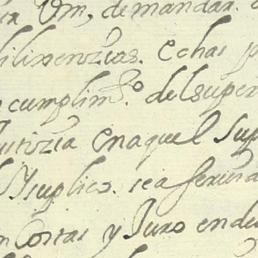 Vm, demandar
diligencias. echas
cumplim.to del super
Justozia enaquel Sup
Suplico. sea servid
Costas y Juro ende